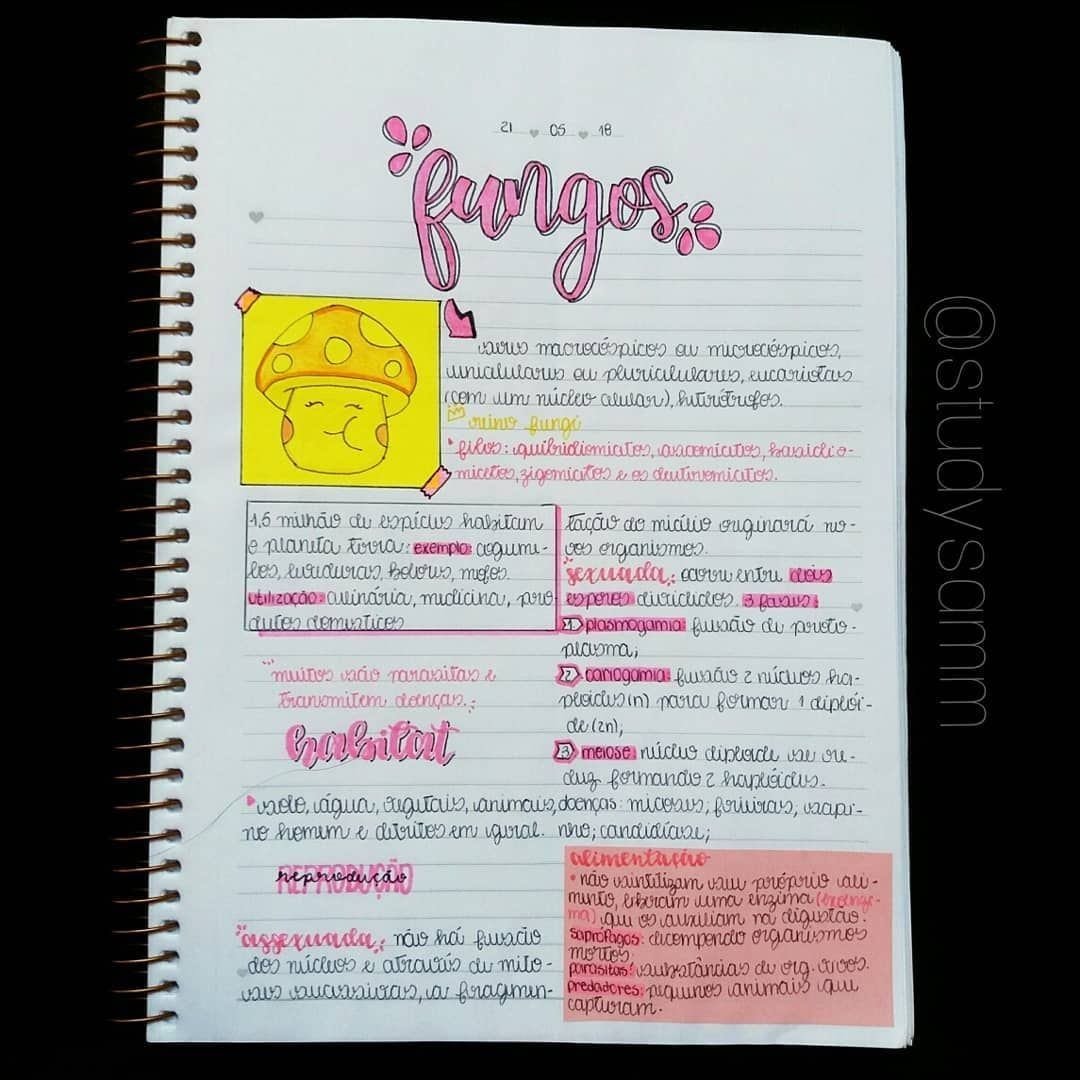 21 05 18
fungos
seres macrocóspicos ou microcóspicos,
unicelulares ou pluricelulares, eucariotas
(com um núcleo celular), heterótrofos.
reino fungi
filos: quitridiomicetos, ascomicetos, basidio-
micetos, zigomicetos e os deuteromicetos.
1,5 milhão de espécies habitam
o planeta terra: exemplo: cogume-
los, leveduras, bolores, mofos.
utilização: culinária, medicina, pro-
dutos domesticos
muitos são parasitas e
transmitem doenças.
habitat
solo, água, vegetais, animais,
no homem e detritos em geral.
REPRODUÇÃO
reprodução
assexuada: não há fusão
dos núcleos e através de mito-
ses sucessivas, a fragmen-
tação do micélio originará no-
vos organismos.
sexuada: ocorre entre dois
esporos divididos. 3 fases:
1 plasmogamia: fusão de proto-
plasma;
2 cariogamia: fusão 2 núcleos ha-
ploides (n) para formar 1 diplói-
de (2n);
3 meiose: núcleo diploide se re-
duz formando 2 haplóides.
doenças: micoses; frieiras, sapi-
nho; candidíase;
alimentação
não sintetizam seu próprio ali-
mento, liberam uma enzima (exoenzi-
ma) que os auxiliam na digestão.
saprófagos: decompondo organismos
mortos.
parasitas: substâncias de org. vivos.
predadores: pequenos animais que
capturam.
@studysamm